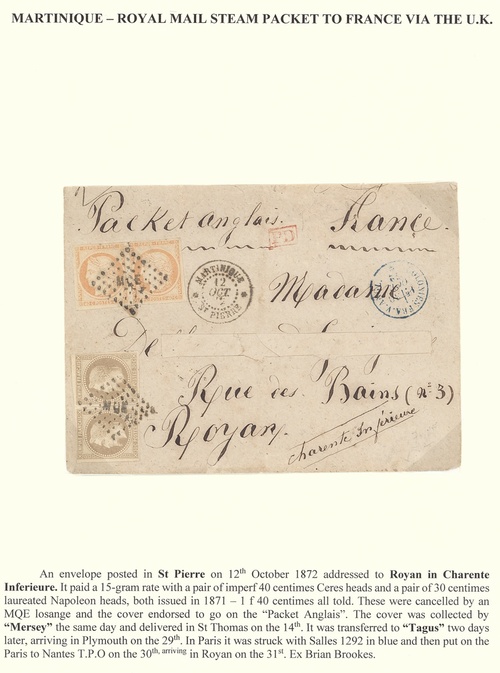 MARTINIQUE – ROYAL MAIL STEAM PACKET TO FRANCE VIA THE U.K.
Packet anglais. France.
PD
MARTINIQUE
12
OCT
ST PIERRE
MQE
Madame
De
MQE
Rue des Bains (nº 3)
Royan
Charente Inférieure
An envelope posted in St Pierre on 12th October 1872 addressed to Royan in Charente
Inferieure. It paid a 15-gram rate with a pair of imperf 40 centimes Ceres heads and a pair of 30 centimes
laureated Napoleon heads, both issued in 1871 – 1 f 40 centimes all told. These were cancelled by an
MQE losange and the cover endorsed to go on the “Packet Anglais”. The cover was collected by
“Mersey” the same day and delivered in St Thomas on the 14th. It was transferred to “Tagus” two days
later, arriving in Plymouth on the 29th. In Paris it was struck with Salles 1292 in blue and then put on the
Paris to Nantes T.P.O on the 30th, arriving in Royan on the 31st. Ex Brian Brookes.